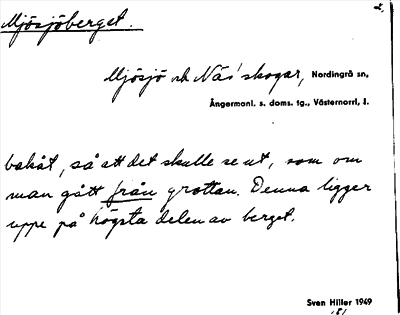 2.
Mjösjöberget.
Mjösjö och Näs' skogar, Nordingrå sn,
Ångermanl. s. doms. tg., Västernorrl. l.
bakåt, så att det skulle se ut, som om
man gått från grottan. Denna ligger
uppe på högsta delen av berget.
Sven Hiller 1949